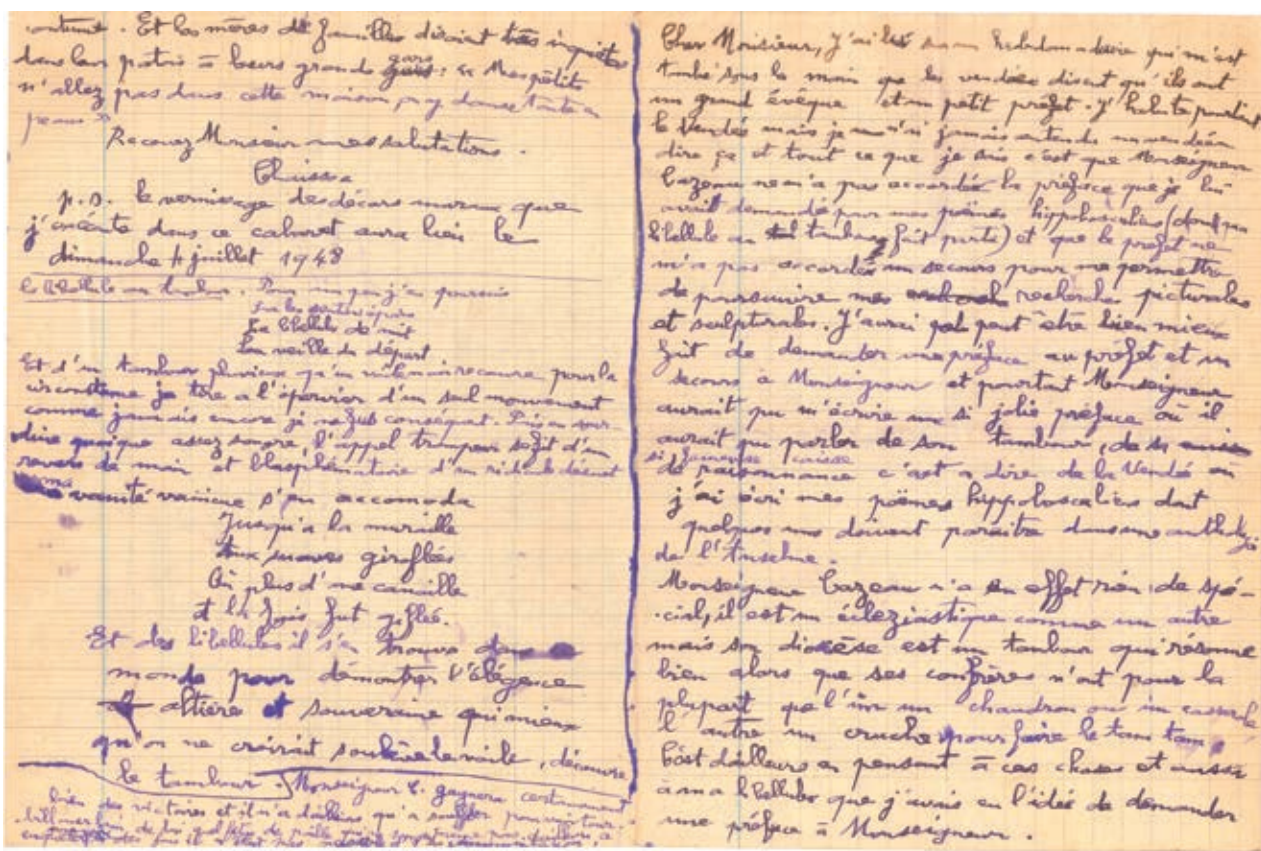 contentent. Et les mères de familles disaient très inquiètes
dans leur patois à leurs grands gars : "Mes petits
n'allez pas dans cette maison, on y danse tante
peaux"
Recevez Monsieur mes salutations.
Chaissac
p.s. le vernissage des décors muraux que
j'exécute dans ce cabaret aura lieu le
dimanche 4 juillet 1948
la libellule au tambour. Pour un peu j'en
La libellule de nuit
La veille du départ
Et d'un tambour pluvieux qu'un recoure pour la
circonstance je tire a l'épervier d'un seul mouvement
comme jamais encore je ne fus conséquent. Puis en
dine quoique assez sonore l'appel trompeur se fit d'un
revers de main et blasphématoire d'un ridicule
ma vanité vainicue s'en accomoda
Jusqu'a la muraille
Aux suaves giroflées
Où plus d'une canaille
à la fois fut giflée.
Et des libellules il s'en trouva
monde pour démontrer l'élégence
altière et souveraine qui mieux
qu'on ne croirait soulève le voile, découvre
le tambour. Monseigneur C. gagnera certainement
bien des victoires et il n'a dailleurs qu'a souffler pour
Cher Monsieur, J'ai lu sur un hebdomadaire qui m'est
tombé sous la main que les vendéens disent qu'ils ont
un grand évêque et un petit préfet. J'habite pourtant
la Vendée mais je n'ai jamais entendu un vendéen
dire ça et tout ce que je sais c'est que Monseigneur
Cazeau ne m'a pas accordé la préface que je lui
avait demandé pour mes poèmes hippoboscaliens (dont ma
libellule au tambour fait parti) et que le préfet ne
m'a pas accordé un secours pour me permettre
de poursuivre mes recherches picturales
et sculpturales. J'aurai peut être bien mieux
fait de demander une préface au préfet et un
secours à Monseigneur et pourtant Monseigneur
aurait pu m'écrire une si jolie préface où il
aurait pu parler de son tambour, de sa
si fameuse caisse
de raisonnance c'est a dire de la Vendé où
j'ai écri mes poèmes hippoboscaliens dont
quelques uns doivent paraitre dans une anthologie
de l'Anselme.
Monseigneur Cazeau n'a en effet rien de spé-
cial, il est un écleziastique comme un autre
mais son diocèse est un tambour qui résonne
bien alors que ses confrères n'ont pour la
plupart que l'un un chaudron ou un casserole
l'autre un cruche pour faire le tam tam
C'est dailleurs en pensant à ces choses et aussi
à ma libellule que j'avais eu l'idée de demander
une préface à Monseigneur.